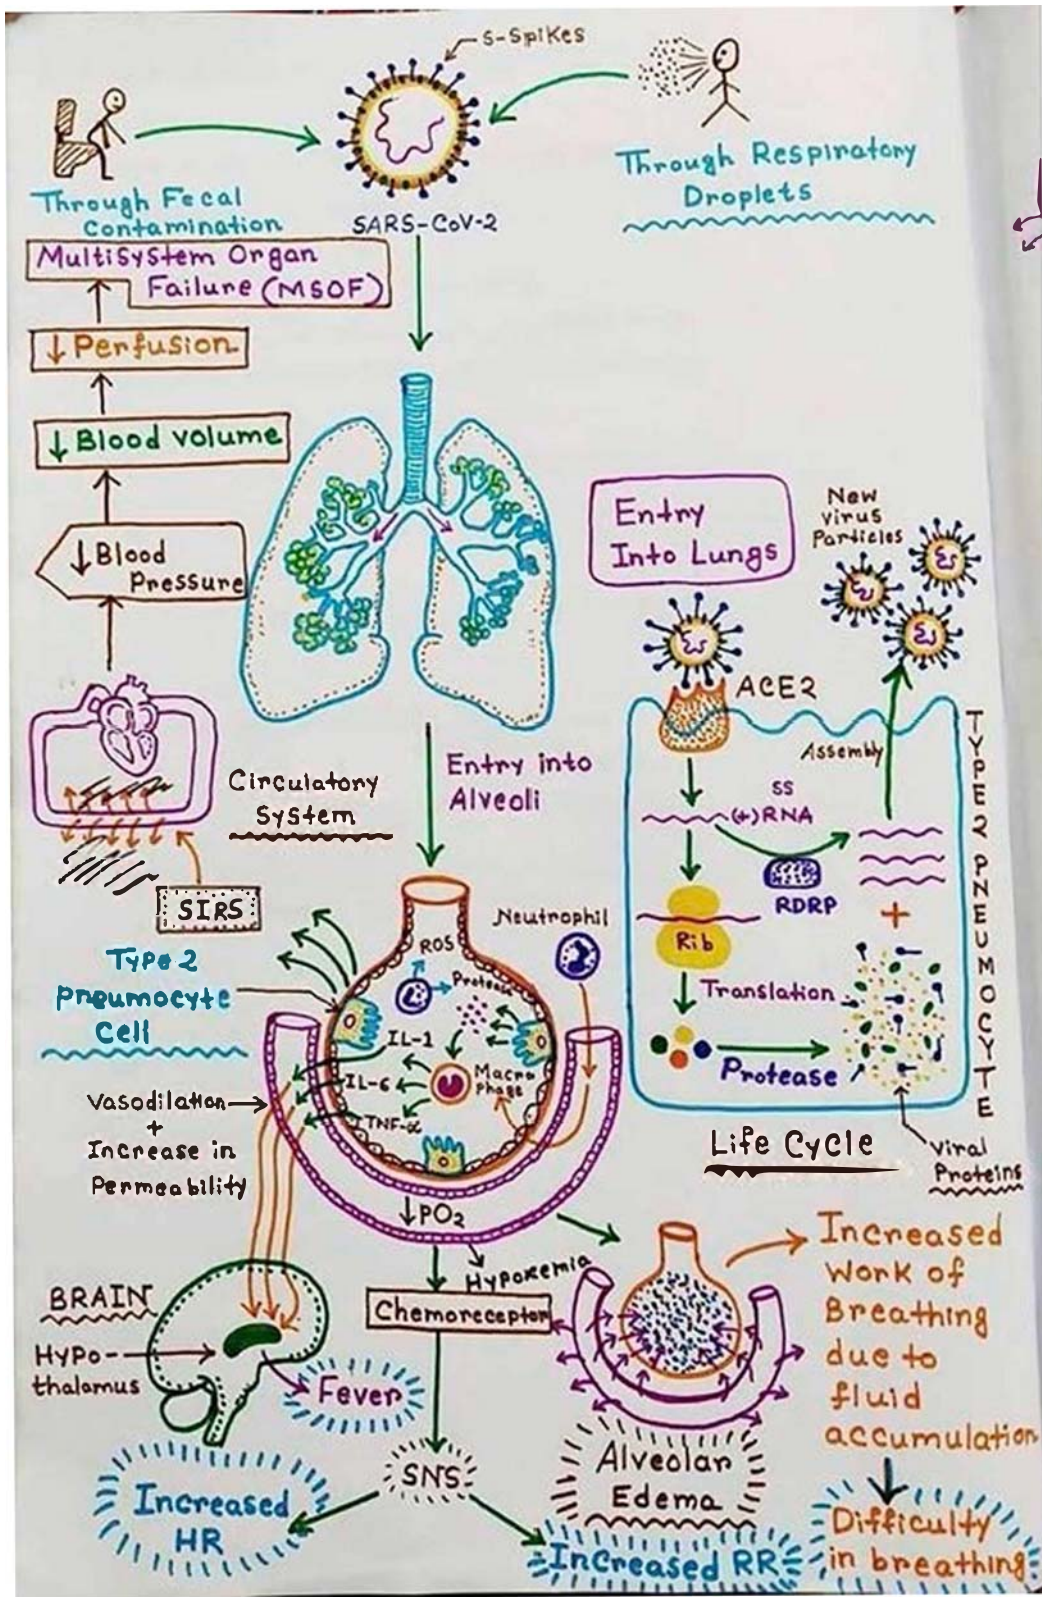 S-Spikes
Through Fecal
Contamination
SARS-CoV-2
Through Respiratory
Droplets
Multisystem Organ
Failure (MSOF)
↓ Perfusion
↓ Blood volume
↓ Blood
Pressure
Circulatory
System
SIRS
Entry into
Alveoli
Entry
Into Lungs
New
Virus
Particles
ACE2
Assembly
SS
(+)RNA
RDRP
Rib
+
Translation
Protease
TYPE 2 PNEUMOCYTE
Life Cycle
Viral
Proteins
Type 2
Pneumocyte
Cell
Neutrophil
ROS
Protease
IL-1
IL-6
TNF-α
Macro
phage
Vasodilation
+
Increase in
Permeability
↓PO2
Hypoxemia
Chemoreceptor
BRAIN
Hypo-
thalamus
Fever
SNS
Increased
HR
Increased RR
Alveolar
Edema
Increased
Work of
Breathing
due to
fluid
accumulation
Difficulty
in breathing